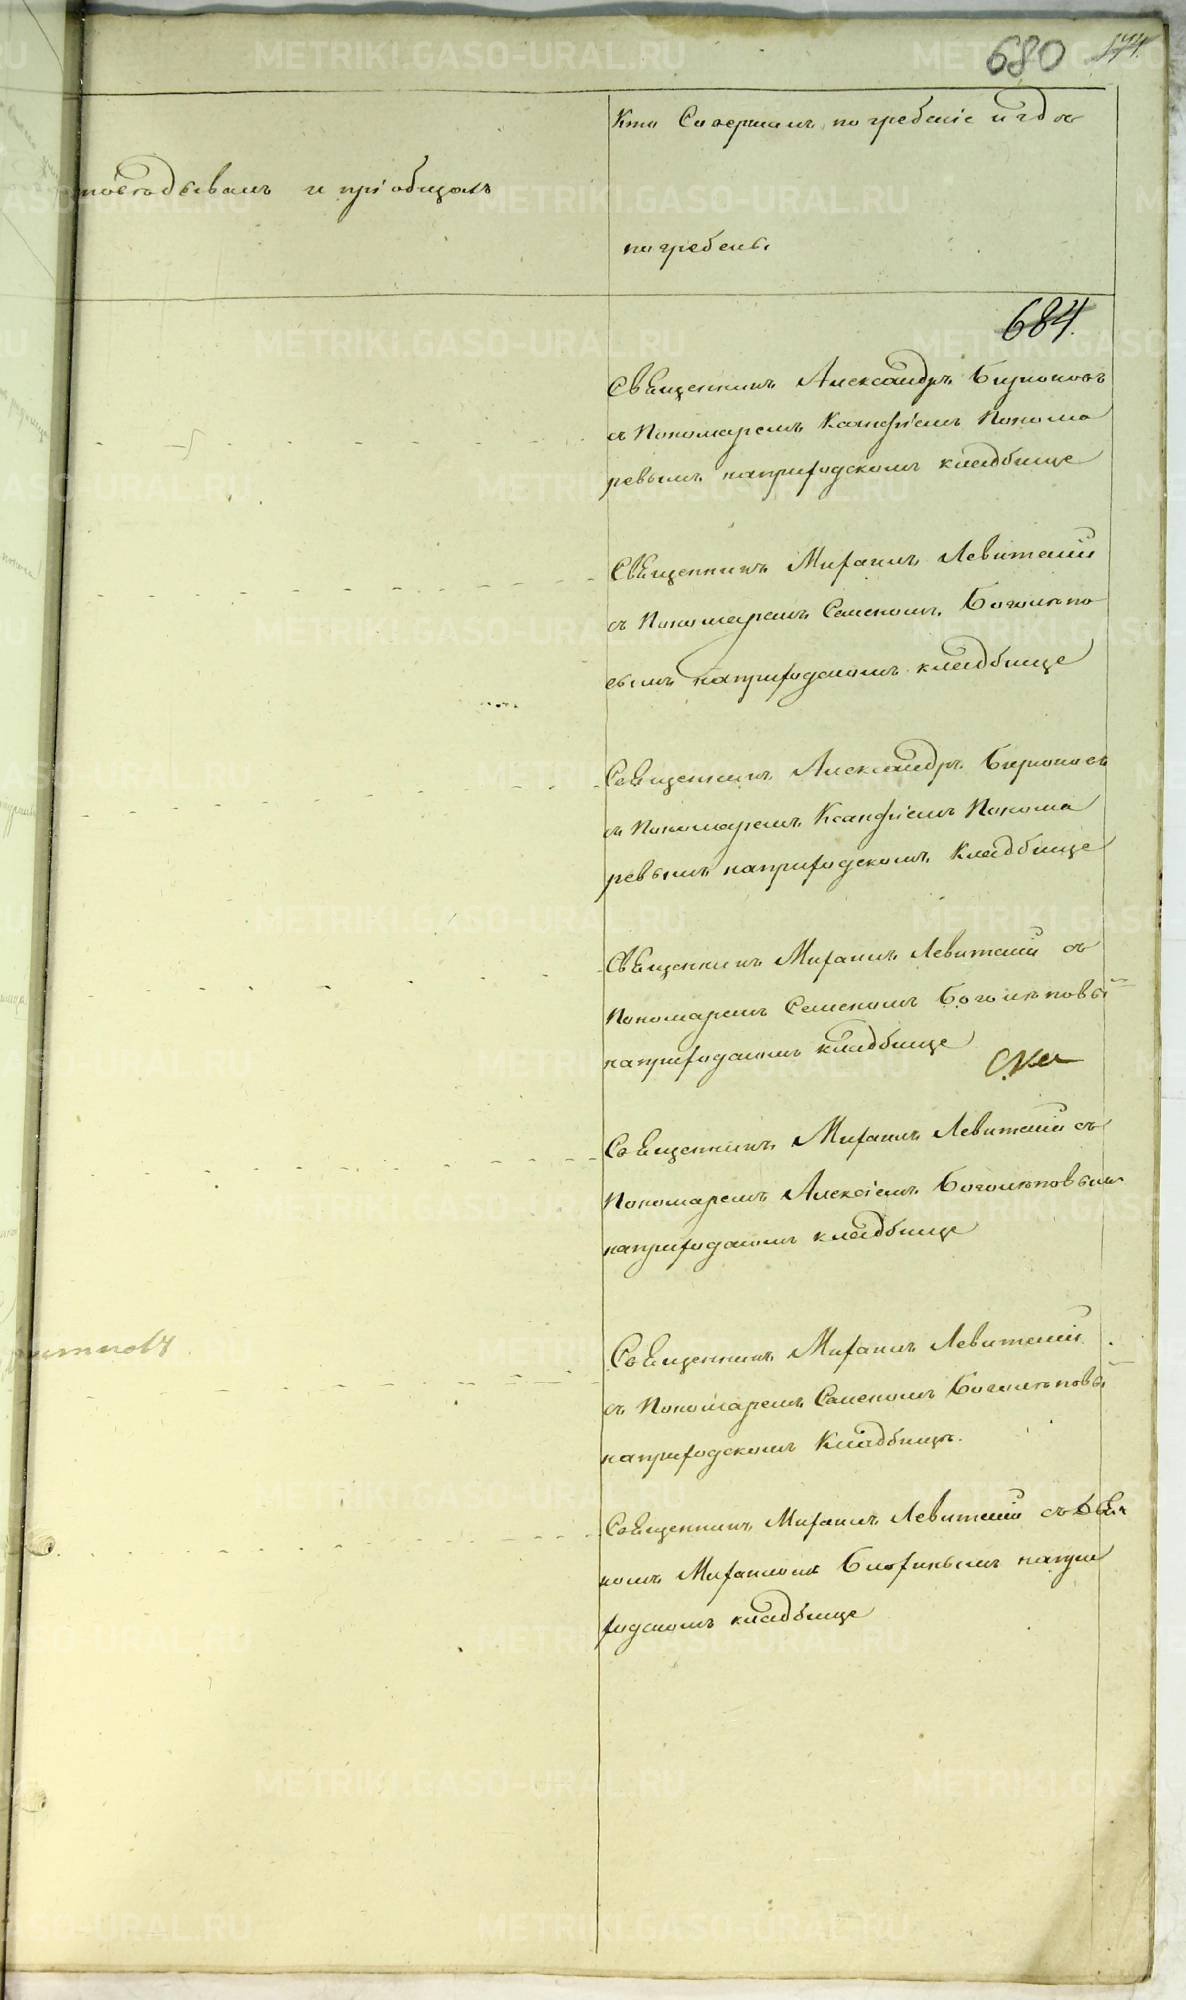 680
Кто Совершалъ погребеніе и гдѣ
исповѣдывалъ и пріобщалъ
погребены
684
Священникъ Александръ Бирюковъ
съ Пономаремъ Ксанфіемъ Понома
ревымъ наприходскомъ кладбище
Священникъ Михаилъ Левитскій
съ Пономаремъ Семеномъ Боголюпо
вымъ наприходскомъ кладбище
Священникъ Александръ Бирюковъ
съ Пономаремъ Ксанфіемъ Понома
ревымъ наприходскомъ Кладбище
Священникъ Михаилъ Левитскій съ
Пономаремъ Семеномъ Боголюповы
наприходскомъ кладбище
Священникъ Михаилъ Левитскій съ
Пономаремъ Алексіемъ Боголюповым
наприходскомъ кладбище
Священникъ Михаилъ Левитскій
съ Пономаремъ Семеномъ Боголюповы
наприходскомъ Кладбищѣ.
Священникъ Михаилъ Левитскій съ Дьяч
комъ Михаиломъ наприходскомъ
ходскомъ кладбище
METRIKI.GASO-URAL.RU